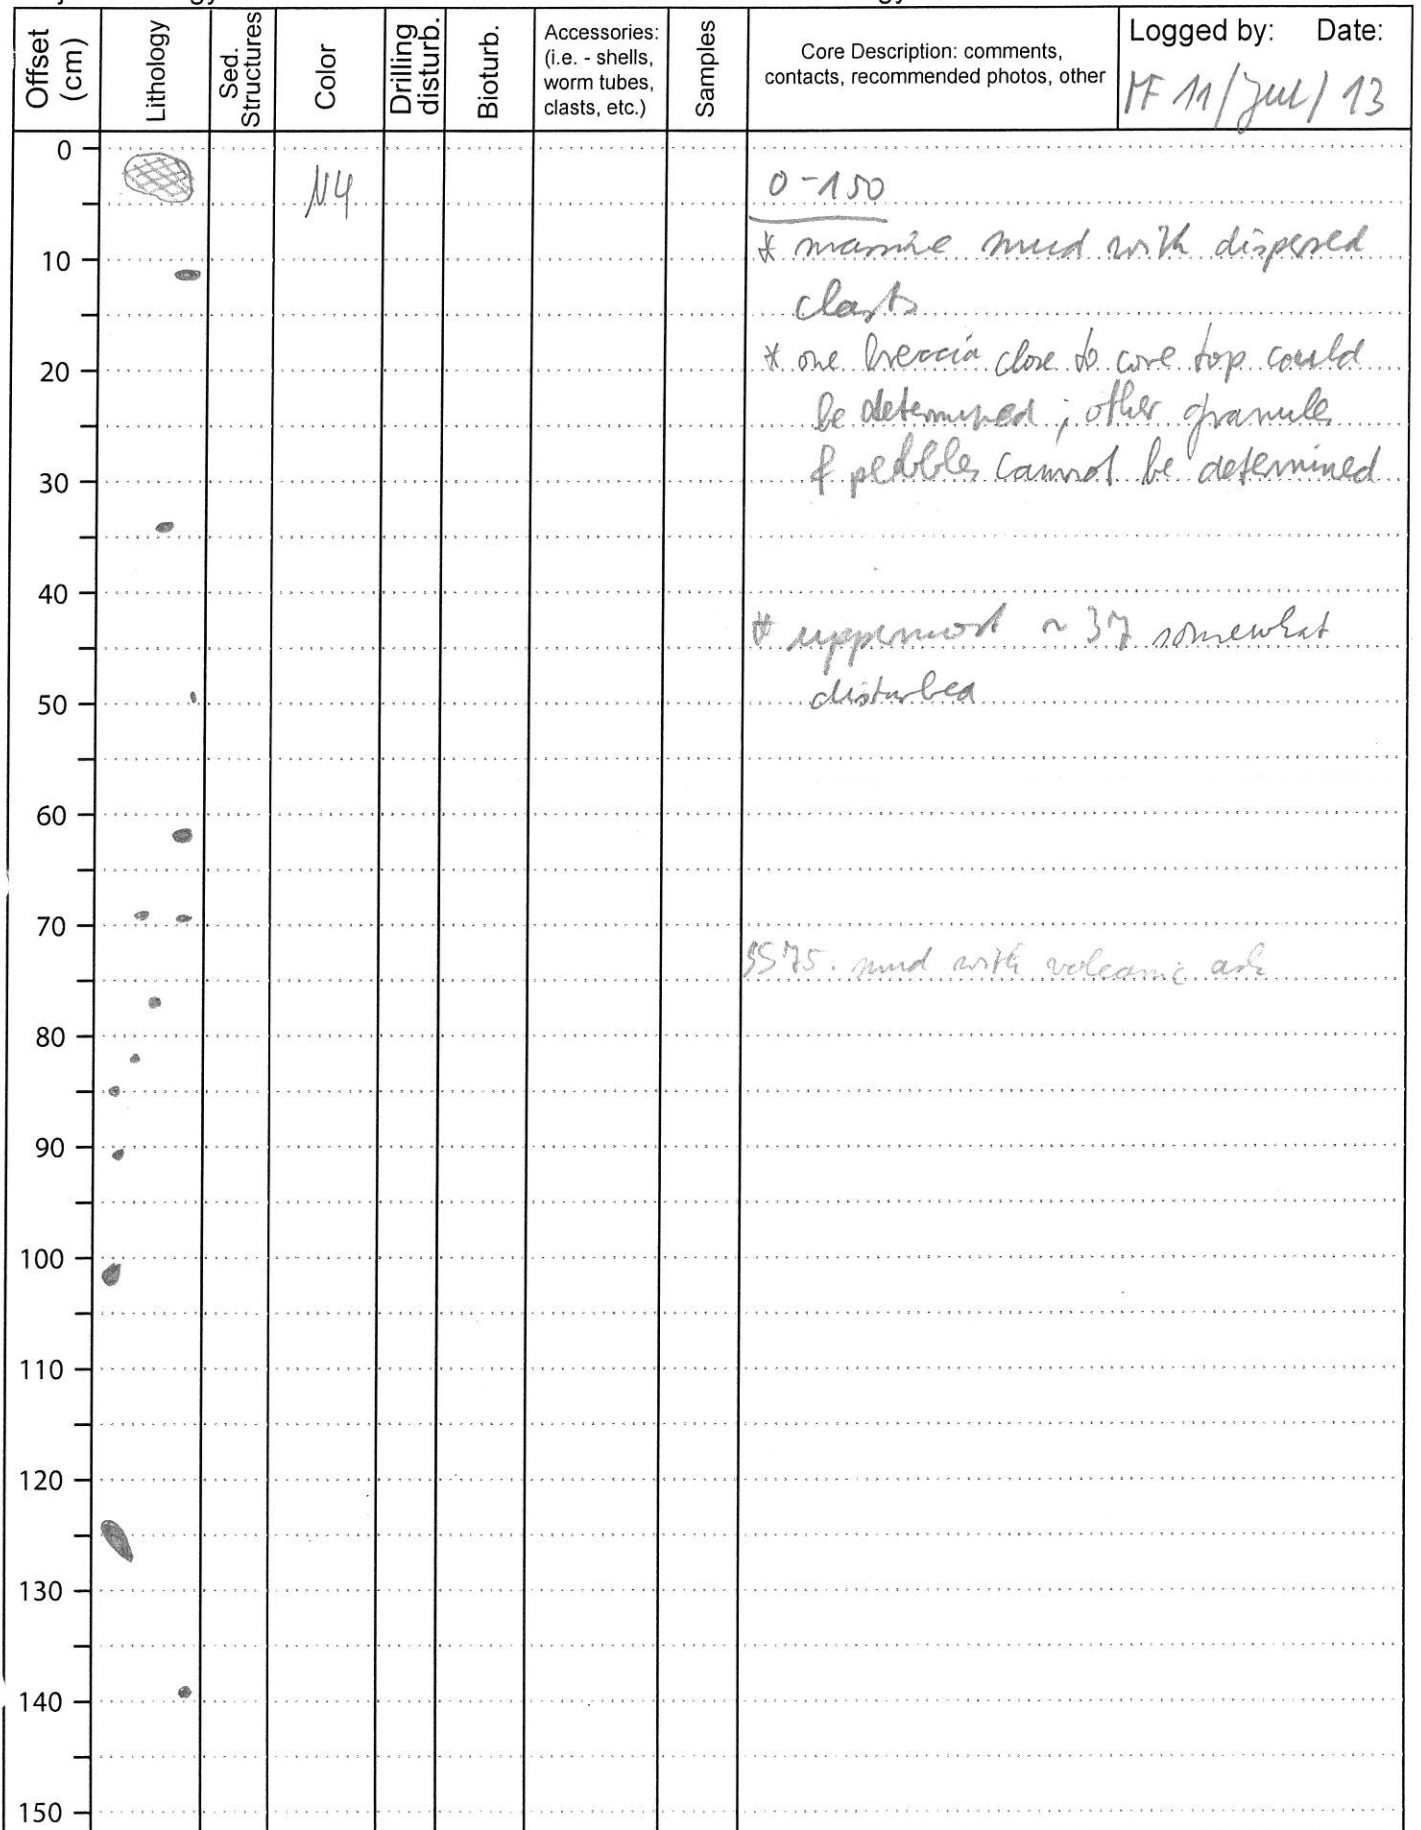 Offset (cm)
Lithology
Sed. Structures
Color
Drilling disturb.
Bioturb.
Accessories:
(i.e. - shells,
worm tubes,
clasts, etc.)
Samples
Core Description: comments,
contacts, recommended photos, other
Logged by: Date:
MF 11/Jul/13
0
N4
0-150
* massive mud with dispersed
10
clasts
* one breccia close to core top could
20
be determined; other granules
& pebbles cannot be determined
30
40
* uppermost ~ 37 somewhat
disturbed
50
60
70
SS75. mud with volcanic ash
80
90
100
110
120
130
140
150